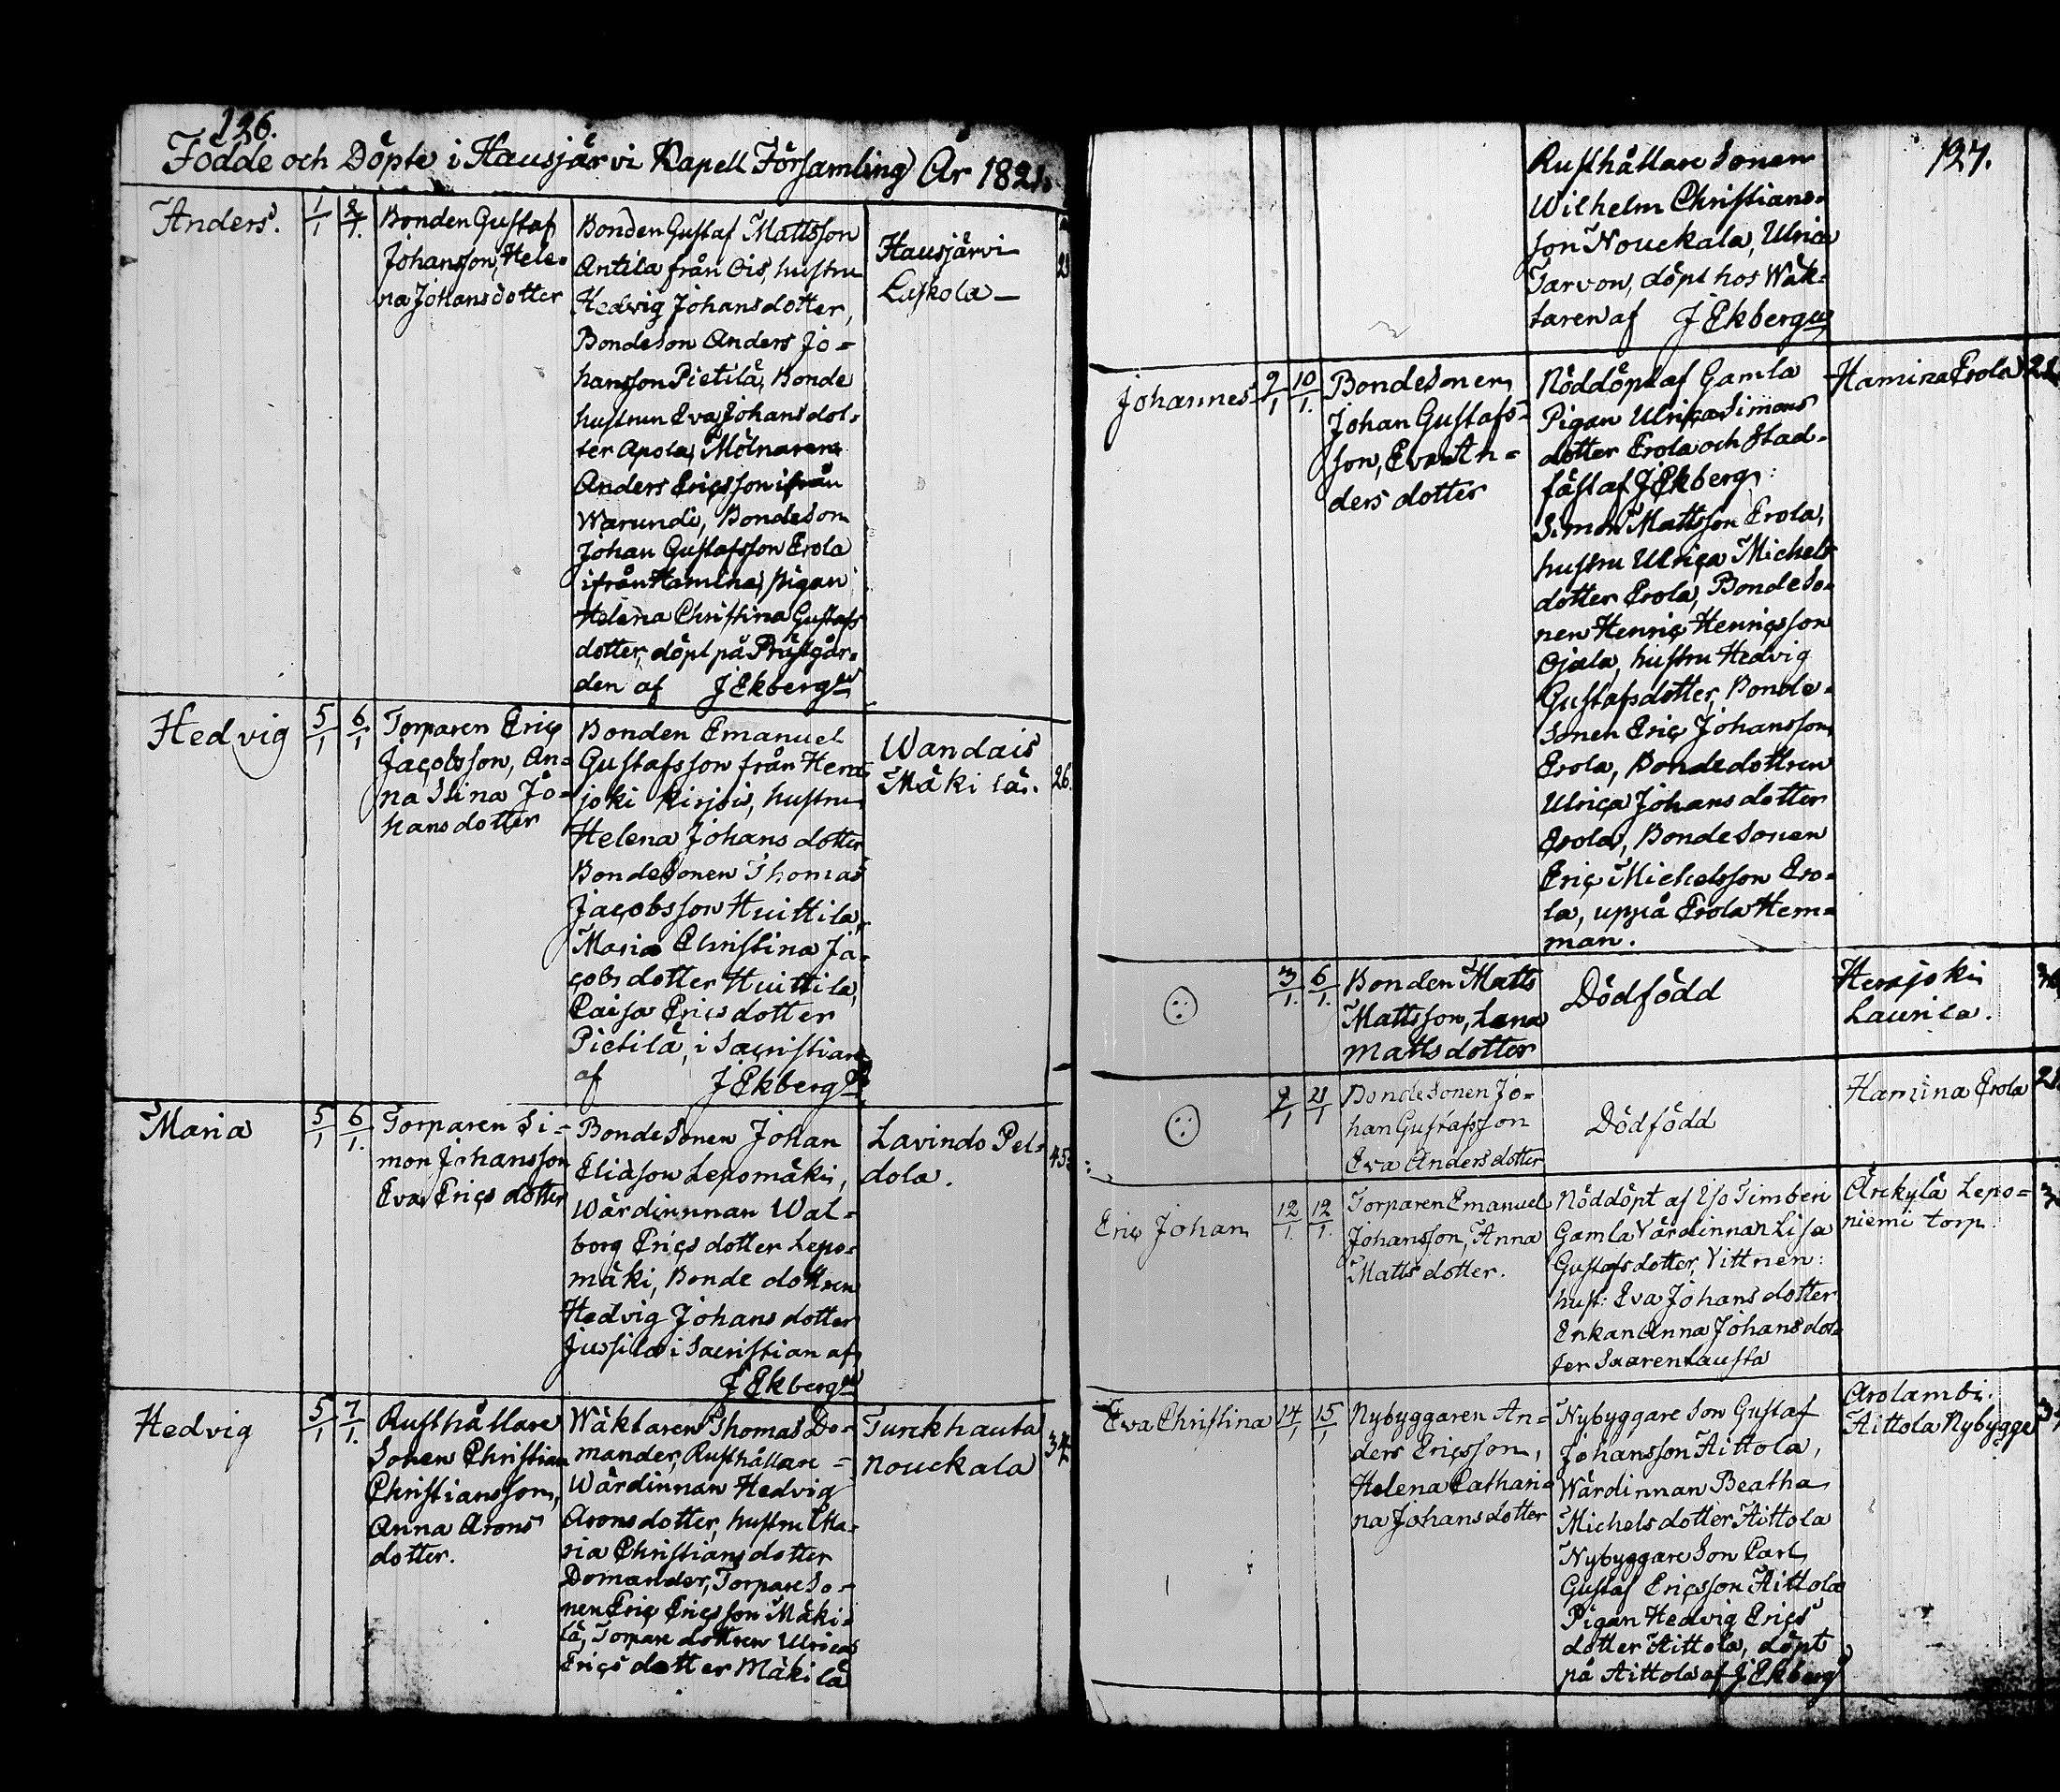 126.
Födde och Döpte i Hausjärvi Kapell Församling År 1821.
Anders.
1/1
8/1.
Bonden Gustaf
Johansson, Hele-
na Johansdotter
Bonden Gustaf Mattsson
Antila från Ois, hustru
Hedvig Johansdotter,
Bondeson Anders Jo-
hansson Pietilä, Bonde
hustrun Eva Johansdot-
ter Apola, Mölnaren
Anders Ericsson ifrån
Warundi, Bondeson
Johan Gustafsson Erola
ifrån Hamina, pigan
Helena Christina Gustafs
dotter, döpt på Prästgår-
den af J Ekberg
Hausjärvi
Laskola
Hedvig
5/1
6/1
Torparen Eric
Jacobsson, An-
na Stina Jo-
hansdotter
Bonden Emanuel
Gustafsson från Hera
joki Kirjois, hustru
Helena Johansdotter
Bondesonen Thomas
Jacobsson Huittila,
Maria Christina Ja-
cobsdotter Huittila,
Caisa Ericsdotter
Pietilä, i Sacristian
af J Ekberg
Wandais
Mäkilä.
26.
Maria
5/1
6/1.
Torparen Si-
mon Johansson
Eva Erics dotter
Bondesonen Johan
Eliasson Lepomäki,
Wärdinnnan Wal-
borg Ericsdotter Lepo-
mäki, Bonde dottren
Hedvig Johansdotter
Jussila i Sacristian af
J Ekberg
Lavindo Pel-
dola.
45.
Hedvig
5/1
7/1.
Rusthållare
Sonen Christian
Christiansson,
Anna Arons
dotter.
Wäktaren Thomas Do-
mander, Rusthållare-
Wärdinnan Hedvig
Aronsdotter, hustru Ma-
ria Christiansdotter
Domander, Torpare So-
nen Eric Ericsson Mäki-
lä, Torpare dottren Ulrica
Erics dotter Mäkilä
Turckhauta
Nouckala
34
127.
Rusthållare Sonen
Wilhelm Christians-
son Nouckala, Ulrica
Tarvon, döpt hos Wäk-
taren af J Ekberg
Johannes
9/1
10/1.
Bondesonen
Johan Gustafs-
son, Eva An-
ders dotter
Nöddöpt af Gamla
Pigan Ulrica Simons
dotter Erola och Stad-
fäst af J Ekberg:
Simon Mattsson Erola,
hustru Ulrica Michels
dotter Erola, Bondeso-
nen Henric Henricsson
Ojala, hustru Hedvig
Gustafsdotter, Bonde-
sonen Eric Johansson
Erola, Bondedottren
Ulrica Johansdotter
Erola, Bondesonen
Eric Michelsson Ero-
la, uppå Erola Hem-
man.
Hamina Erola
3/1.
6/1.
Bonden Matts
Mattsson, Lena
Matts dotter
Dödfödd
Herajoki
Laurila.
9/1
21/1
Bondesonen Jo-
han Gustafsson
Eva Anders dotter
Dödfödd
Hamina Erola
Eric Johan
12/1.
12/1.
Torparen Emanuel
Johansson, Anna
Matts dotter.
Nöddöpt af Iso Timberi
Gamla Värdinnan Lisa
Gustafsdotter, Vittnen:
hust: Eva Johansdotter
Enkan Anna Johansdot-
ter Saarenlausta
Ärckylä Lepo-
niemi torp
Eva Christina
14/1
15/1
Nybyggaren An-
ders Ericsson,
Helena Cathari-
na Johansdotter
Nybyggare Son Gustaf
Johansson Aittola,
Wärdinnan Beatha
Michelsdotter Aittola
Nybyggare Son Carl
Gustaf Ericsson Aittola
Pigan Hedvig Erics
dotter Aittola, döpt
på Aittola af J Ekberg
Arolambi
Aittola Nybygge